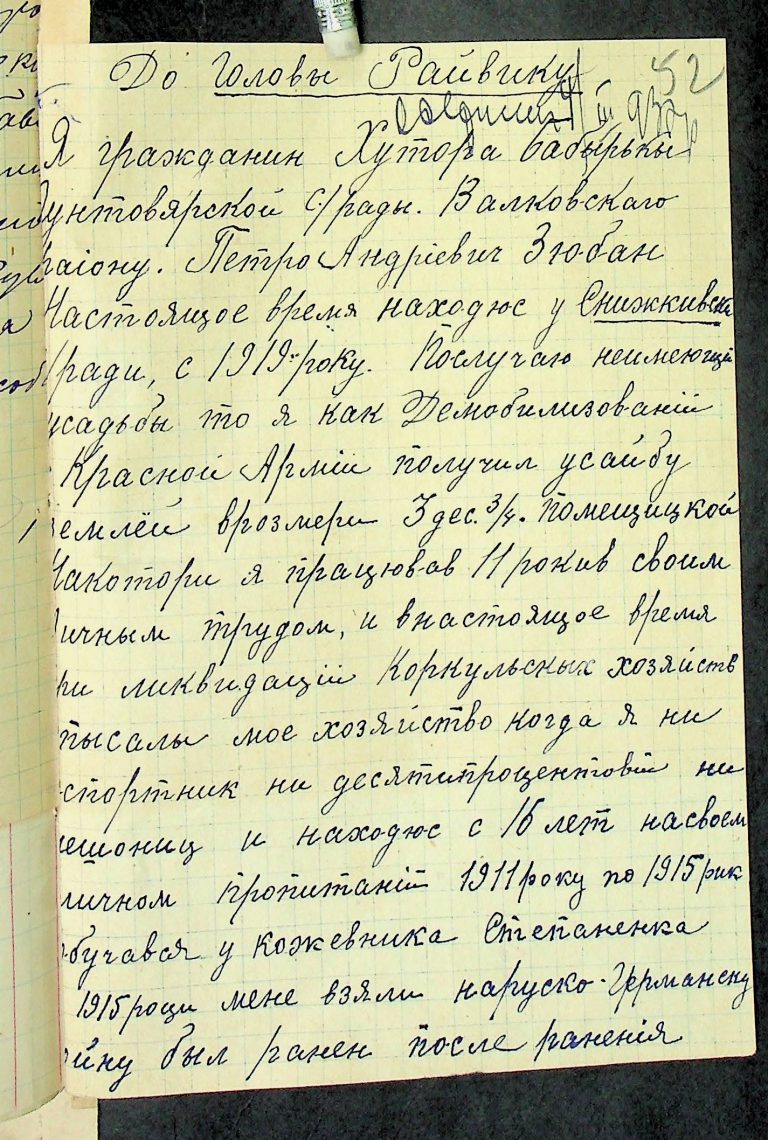 52
До Головы Райвику
Я гражданин Хутора бабырькы
унтовярской с/рады. Валковскаго
раіону. Петро Андріевич Зюбан
Настоящое время находюс у Снижкивск
/ради, с 1919 року. Послучаю неимеющій
усадьбы то я как Демобилизованій
Красной Арміи получил усаибу
землёй врозмери 3 дес. 3/4. помещицкой
Накотори я працював 11 рокив своим
личным трудом, и внастоящое время
ри ликвидаціи Коркульских хозяйств
пысалы мое хозяйство когда я ни
спортник ни десятипроцентовій ни
ешониц и находюс с 16 лет насвоем
личном пропитаніи 1911 року по 1915 рик
обучався у кожевника Степаненка
1915 роци мене взяли наруско-Германску
ойну был ранен после раненія